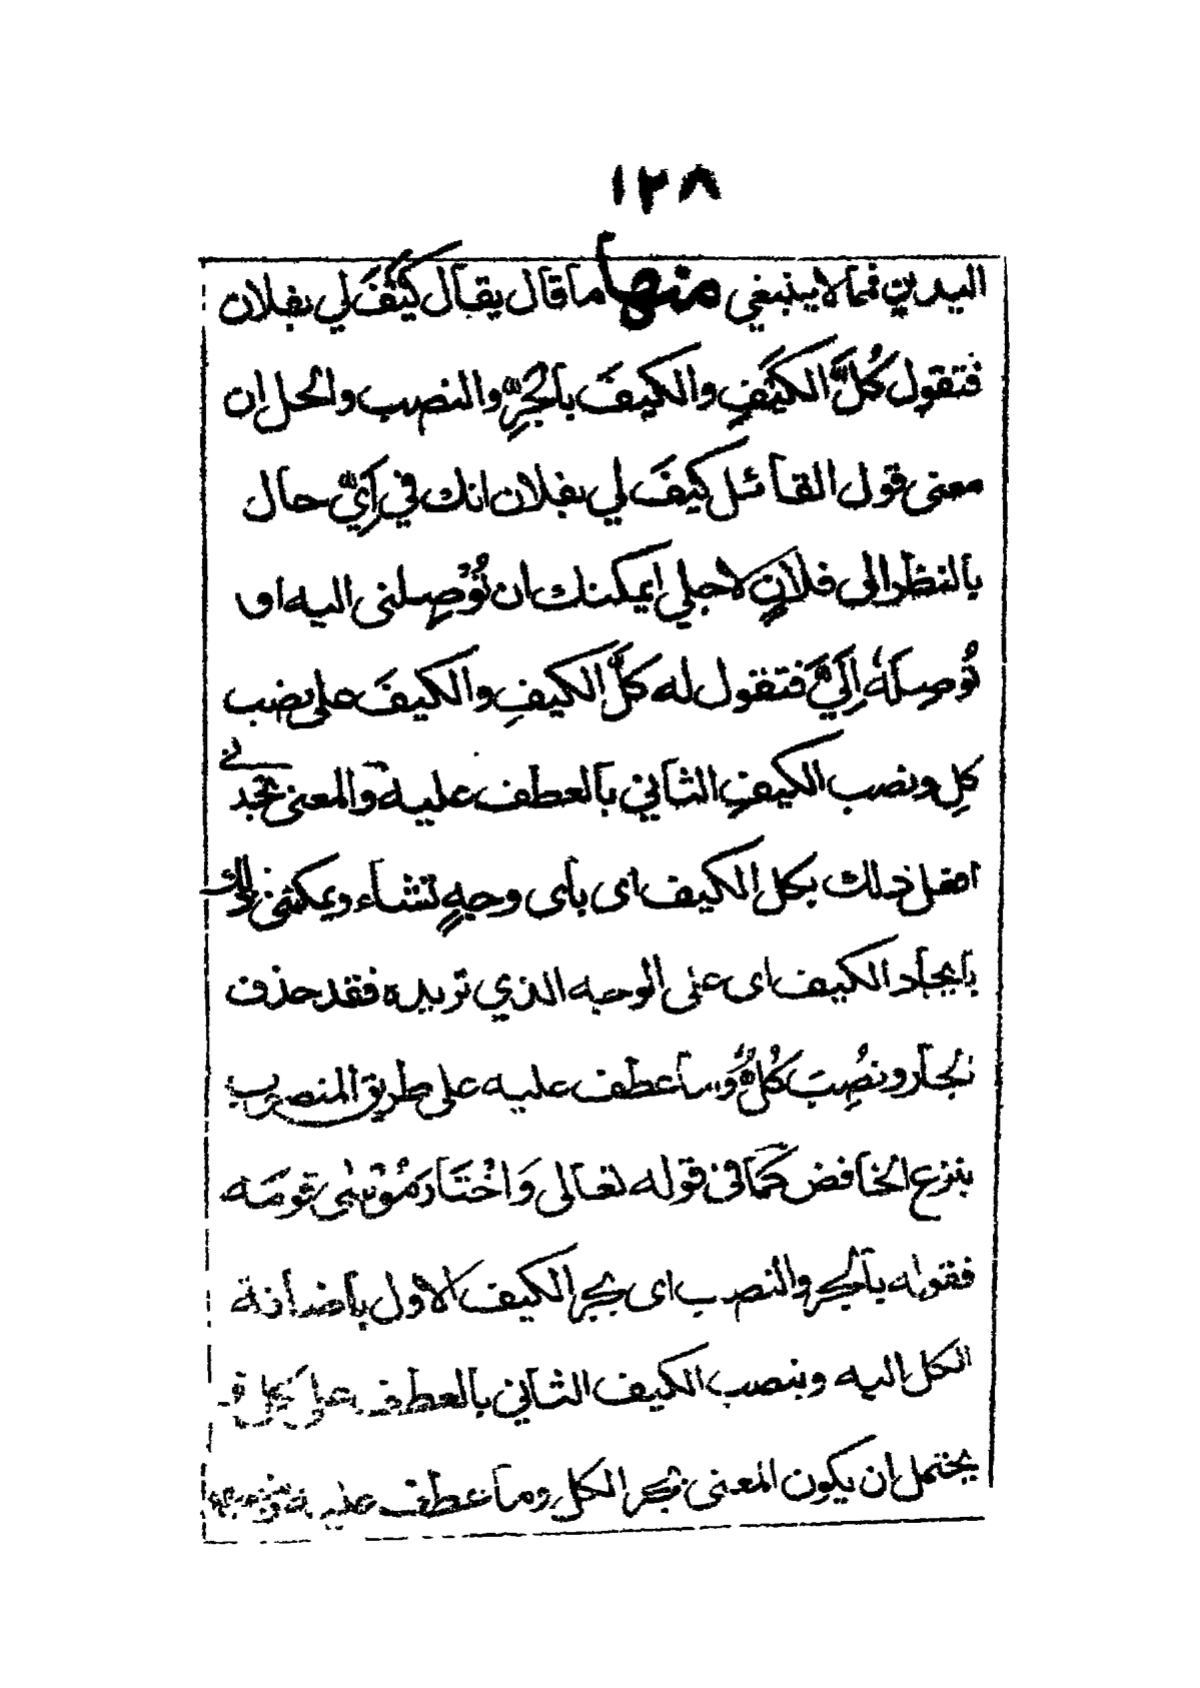 ١٢٨
اليدين فمما لا ينبغي منها ما قال يقال كَيْفَ لي بفلان
فتقول كُلَّ الكَيْفِ والكيفَ بالجَرِّ والنصب والحل ان
معنى قول القائل كيفَ لي بفلان انك في اَيِّ حال
بالنظر الى فلانٍ لاجلي ايمكنك ان تُوْصِلنى اليه او
تُوصِلَهٗ اِلَيَّ فتقول له كلَّ الكيفِ والكيفَ على نصب
كلِ ونصب الكيفِ الثاني بالعطف عليه والمعنى
افعل ذلك بكل الكيف اى باى وجهٍ تشاء ويمكننى ذلك
بايجاد الكيف اى على الوجه الذي تريده فقد حذف
لجار ونُصِبَ كُلٌّ وما عطف عليه على طريق المنصوب
بنزع الخافض كما فى قوله تعالى وَاخْتَارَ مُوْسٰى قومَه
فقوله بالجر والنصب اى بجر الكيف الاول باضافة
الكل اليه وبنصب الكيف الثاني بالعطف على كل
يحتمل ان يكون المعنى بجر الكل وما عطف عليه